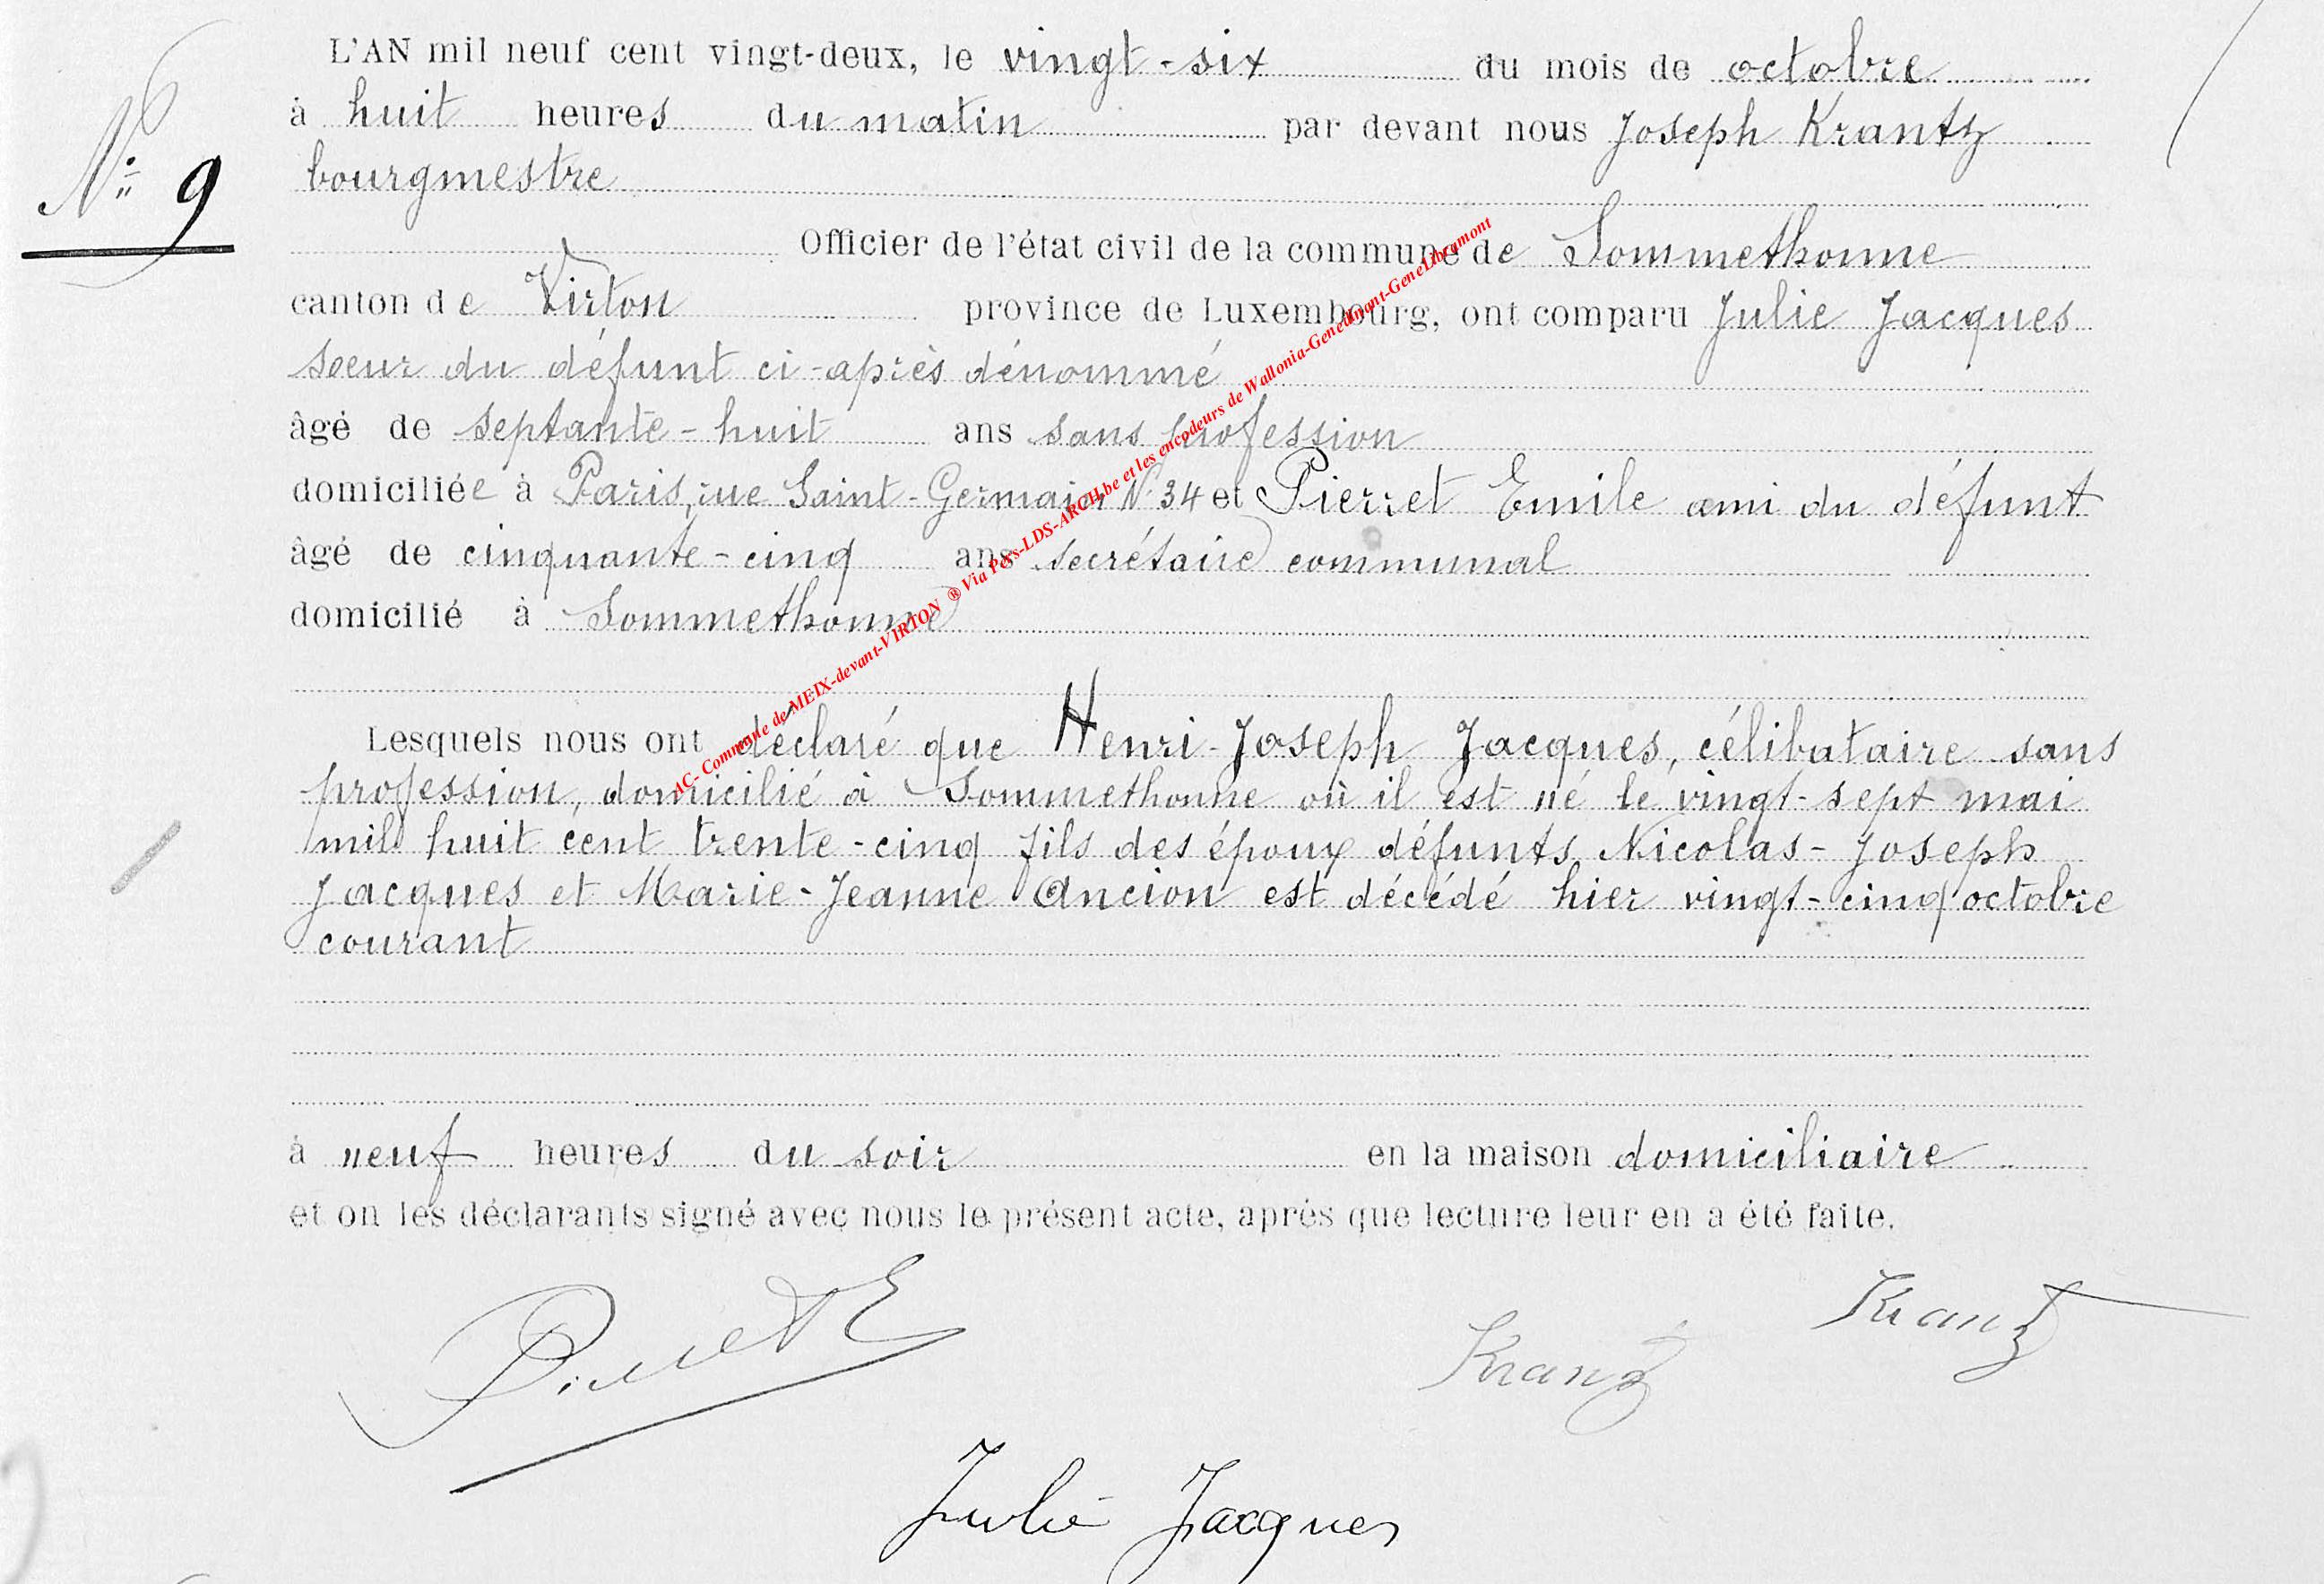 L'AN mil neuf cent vingt-deux, le vingt-six du mois de octobre
à huit heures du matin par devant nous Joseph Krantz
N° 9 bourgmestre
Officier de l'état civil de la commune de Sommethonne
canton de Virton province de Luxembourg, ont comparu Julie Jacques
sœur du défunt ci-après dénommé
âgé de septante-huit ans sans profession
domiciliée à Paris, rue Saint-Germain N° 34 et Pierret Emile ami du défunt
âgé de cinquante-cinq ans secrétaire communal
domicilié à Sommethonne
AC- Commune de MEIX-devant-VIRTON ® Via Pers-LDS-ARCH.be et les encodeurs de Wallonia-Genedinant-GeneLibramont
Lesquels nous ont déclaré que Henri-Joseph Jacques, célibataire sans
profession, domicilié à Sommethonne où il est né le vingt-sept mai
mil huit cent trente-cinq fils des époux défunts Nicolas-Joseph
Jacques et Marie-Jeanne Ancion est décédé hier vingt-cinq octobre
courant
à neuf heures du soir en la maison domiciliaire
et on les déclarants signé avec nous le présent acte, après que lecture leur en a été faite.
Pierret E
Krantz
Krantz
Julie Jacques